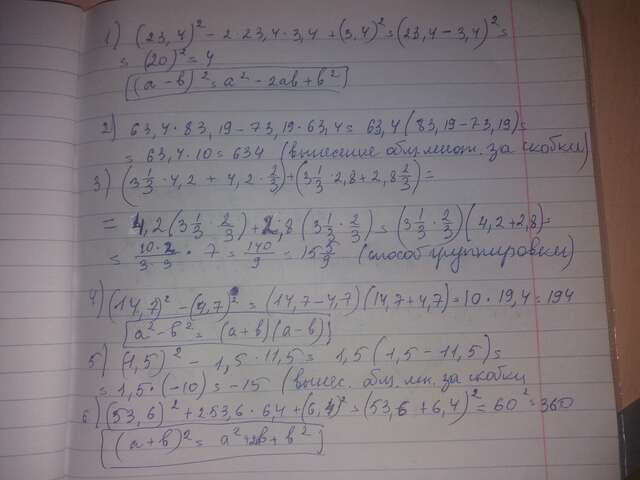 1) (23,4)² - 2·23,4·3,4 + (3,4)² = (23,4 - 3,4)² =
= (20)² = 4
[(a - b)² = a² - 2ab + b²]
2) 63,4 · 83,19 - 73,19 · 63,4 = 63,4 (83,19 - 73,19) =
= 63,4 · 10 = 634 (вынесение общ. множ. за скобки)
3) (3 1/3 · 4,2 + 4,2 · 2/3) + (3 1/3 · 2,8 + 2,8 2/3) =
= 4,2 (3 1/3 · 2/3) + 2,8 (3 1/3 · 2/3) = (3 1/3 · 2/3) (4,2 + 2,8) =
= 10·2/3·3 · 7 = 140/9 = 15 5/9 (способ группировки)
4) (14,7)² - (4,7)² = (14,7 - 4,7) (14,7 + 4,7) = 10 · 19,4 = 194
[a² - b² = (a + b) (a - b)]
5) (1,5)² - 1,5 · 11,5 = 1,5 (1,5 - 11,5) =
= 1,5 · (-10) = -15 (вынес. общ. мн. за скобки)
6) (53,6)² + 2·53,6 · 6,4 + (6,4)² = (53,6 + 6,4)² = 60² = 360
[(a + b)² = a² + 2b + b²]